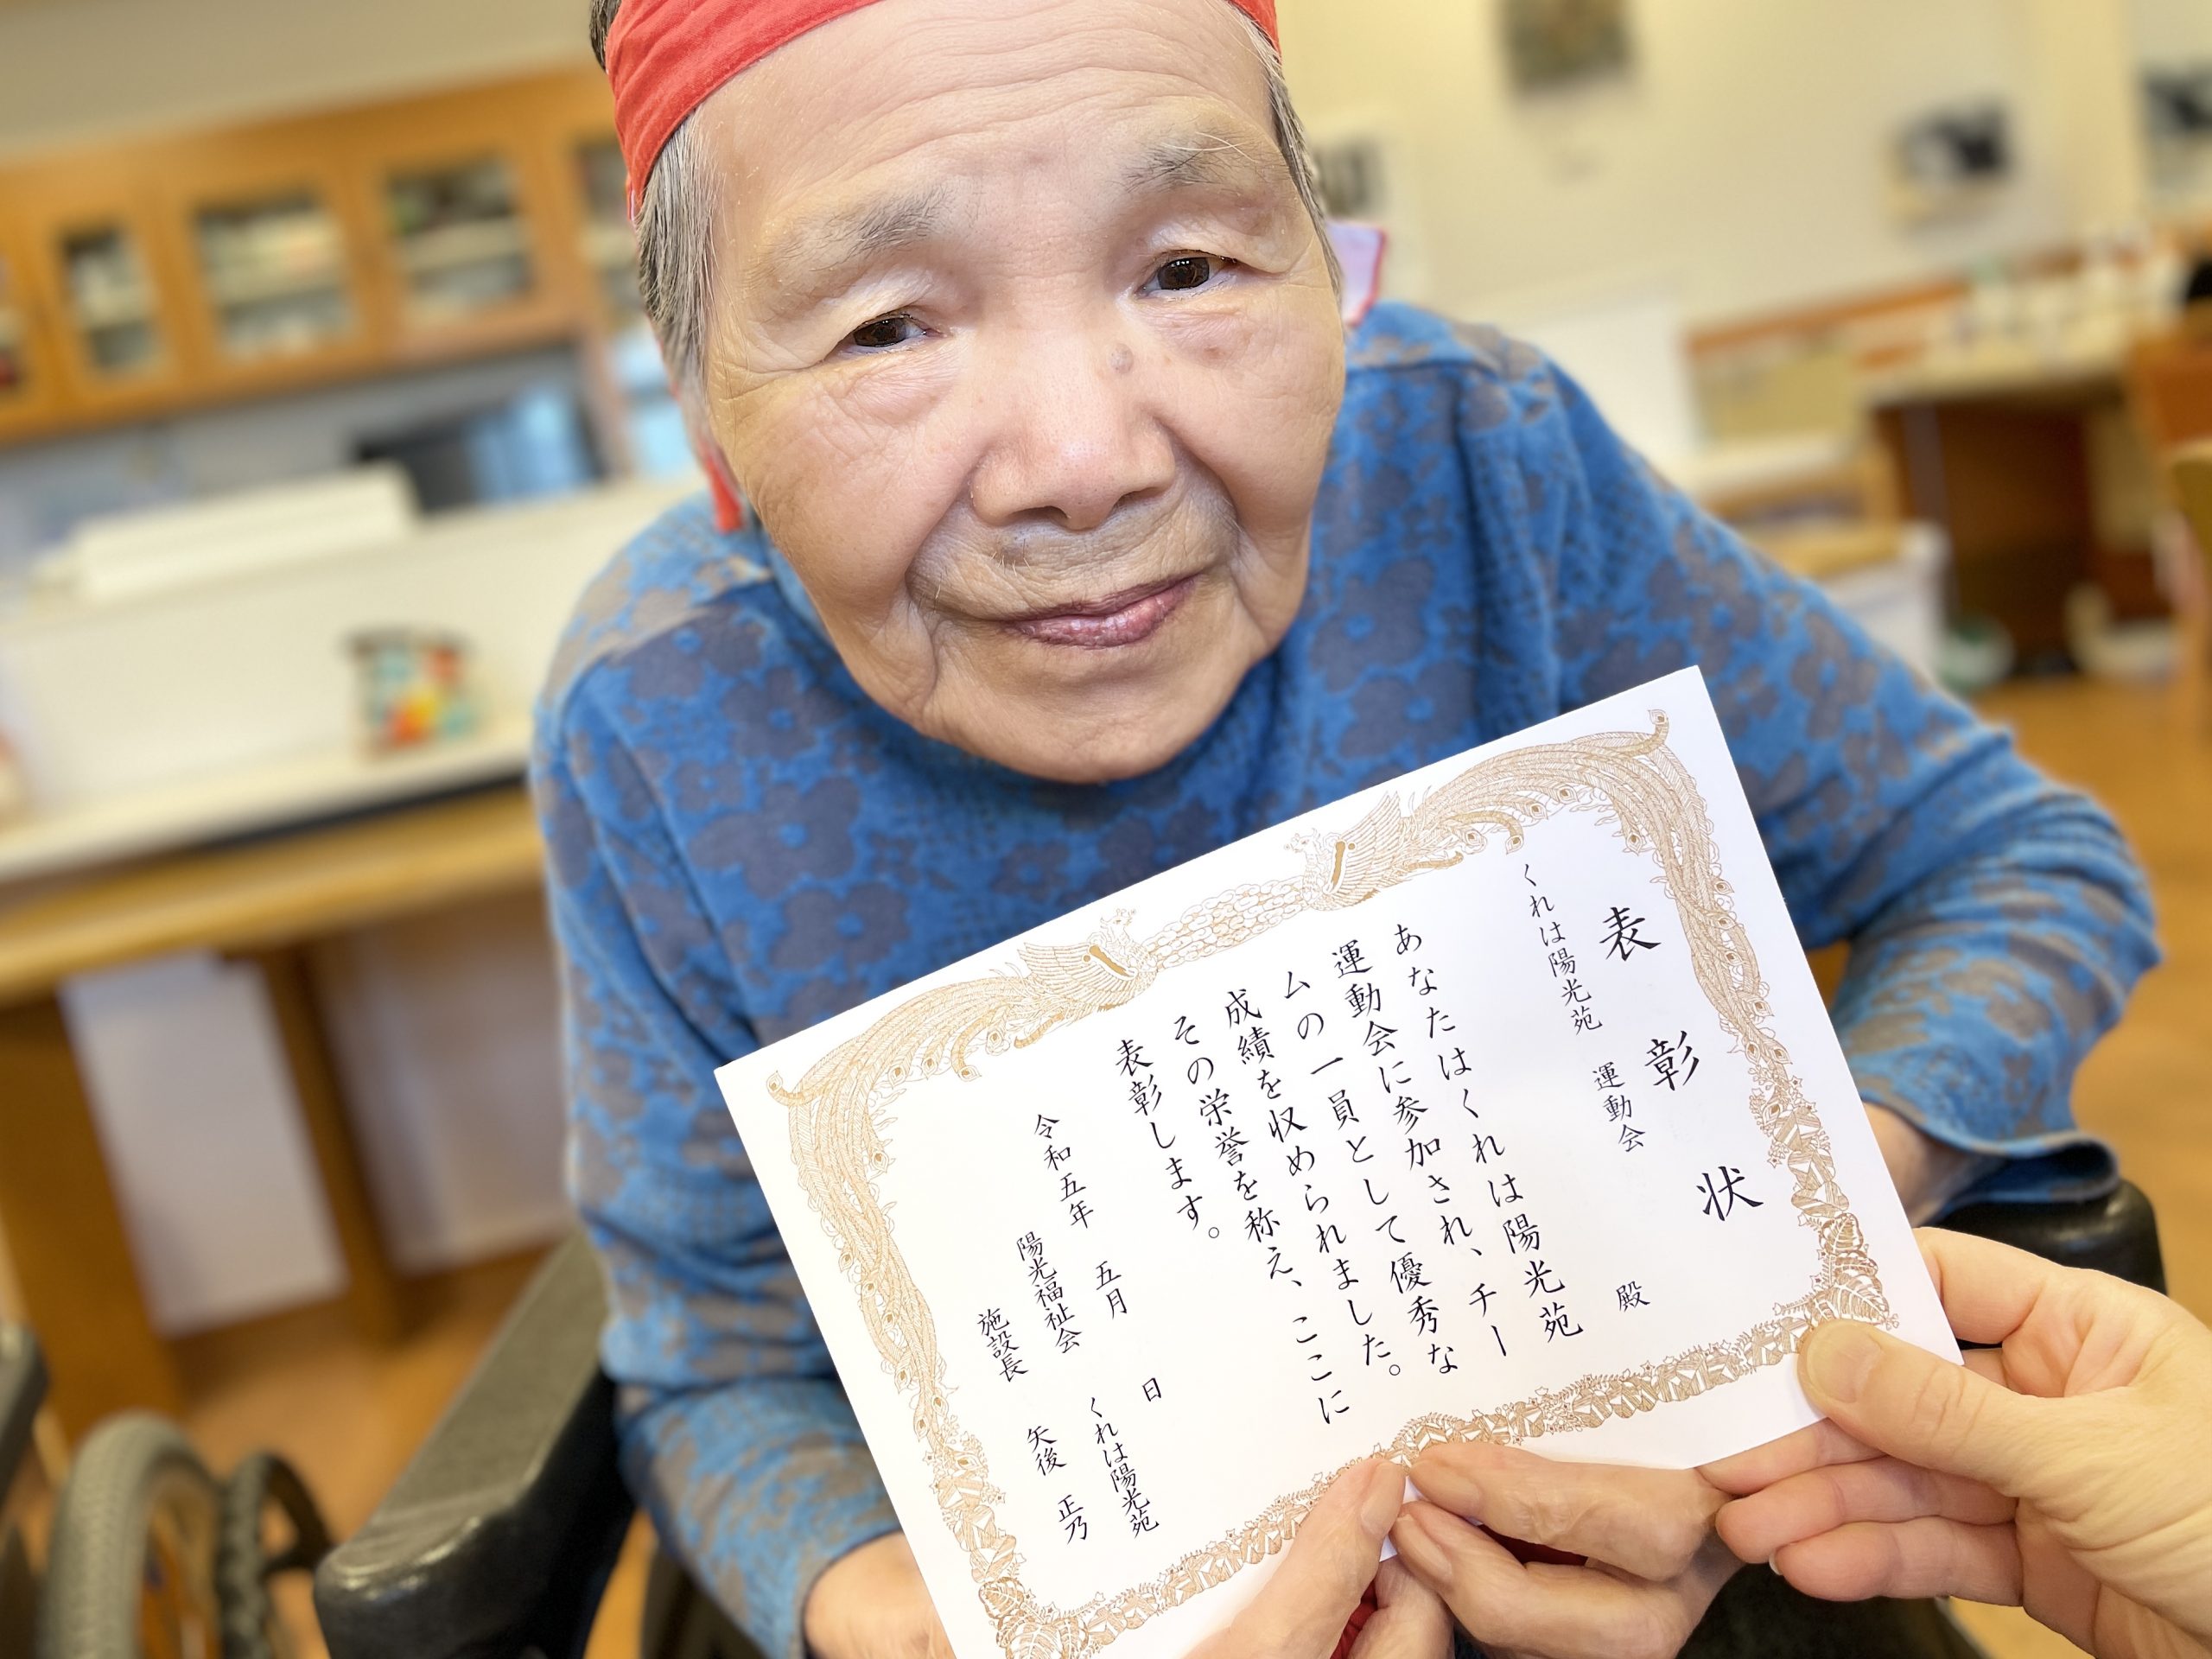 表彰状
くれは陽光苑 運動会 殿
あなたはくれは陽光苑
運動会に参加され、チー
ムの一員として優秀な
成績を収められました。
その栄誉を称え、ここに
表彰します。
令和五年 五月 日
陽光福祉会 くれは陽光苑
施設長 矢後 正乃